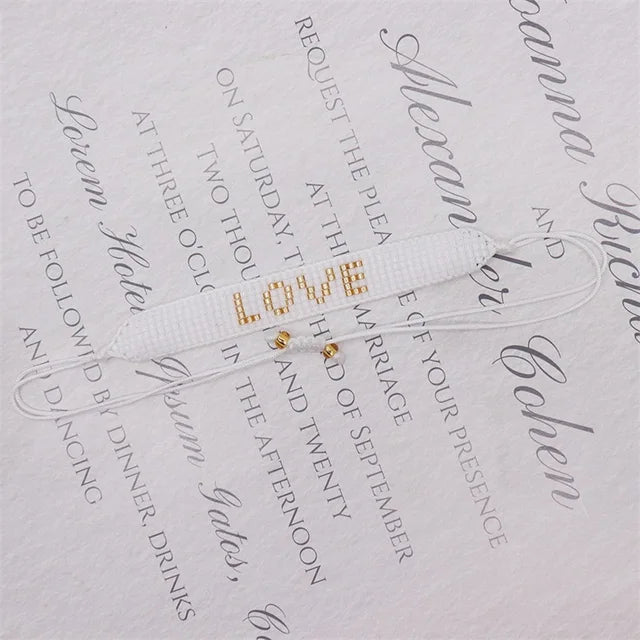 Joanna
Richa
AND
Alexan
Cohen
REQUEST THE PLEA
OF YOUR PRESENCE
AT THE
MARRIAGE
ON SATURDAY, THE
ND OF SEPTEMBER
TWO THOU
AND TWENTY
AT THREE O'CLO
IN THE AFTERNOON
Lorem Hotel
Ipsum Gatos,
TO BE FOLLOWED BY DINNER, DRINKS
AND DANCING
LOVE